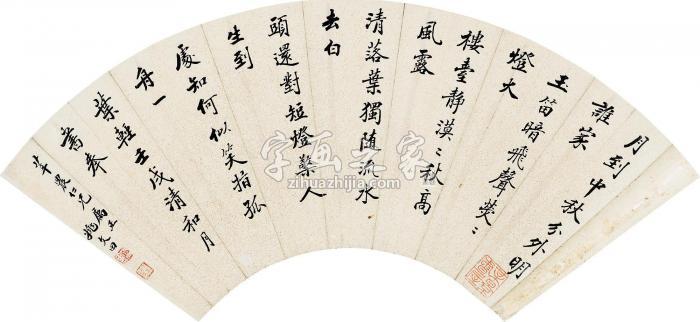 月到中秋分外明
誰家
玉笛暗飛聲熒〻
燈火
樓臺靜漠〻秋高
風露
清落葉獨隨流水
去白
頭還對短燈檠人
生到
處知何似笑指孤
舟一
葉輕壬戌清和月
書奉
農仁兄屬正 姚文田
字画之家
zihuazhijia.com